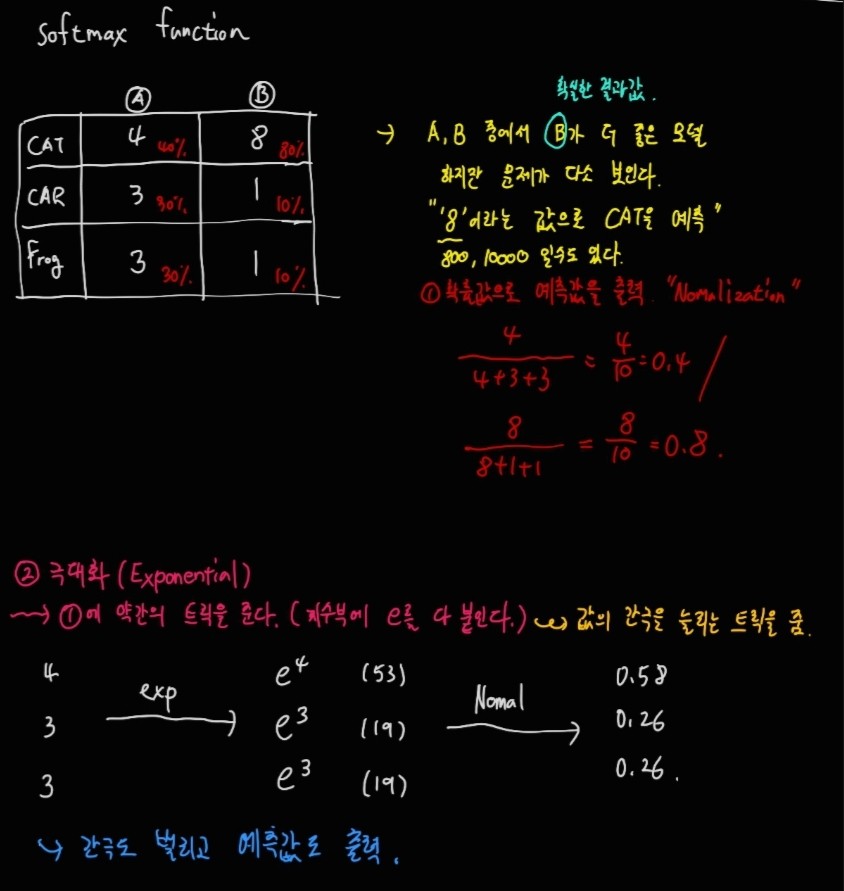 softmax function
Ⓐ Ⓑ
CAT 4 40% 8 80%
CAR 3 30% 1 10%
Frog 3 30% 1 10%
확실한 결과값.
→ A, B 중에서 Ⓑ가 더 좋은 모델
하지만 문제가 다소 보인다.
"'8'이라는 값으로 CAT을 예측"
800, 10000 일수도 있다.
① 확률값으로 예측값을 출력. "Nomalization"
4/(4+3+3) = 4/10 = 0.4 /
8/(8+1+1) = 8/10 = 0.8.
② 극대화 (Exponential)
→ ①에 약간의 트릭을 준다. (지수부에 e를 다 붙인다.) → 값의 간극을 늘리는 트릭을 줌.
4 e⁴ (53) 0.58
exp → Nomal →
3 e³ (19) 0.26
3 e³ (19) 0.26.
↪ 간극도 벌리고 예측값도 출력.